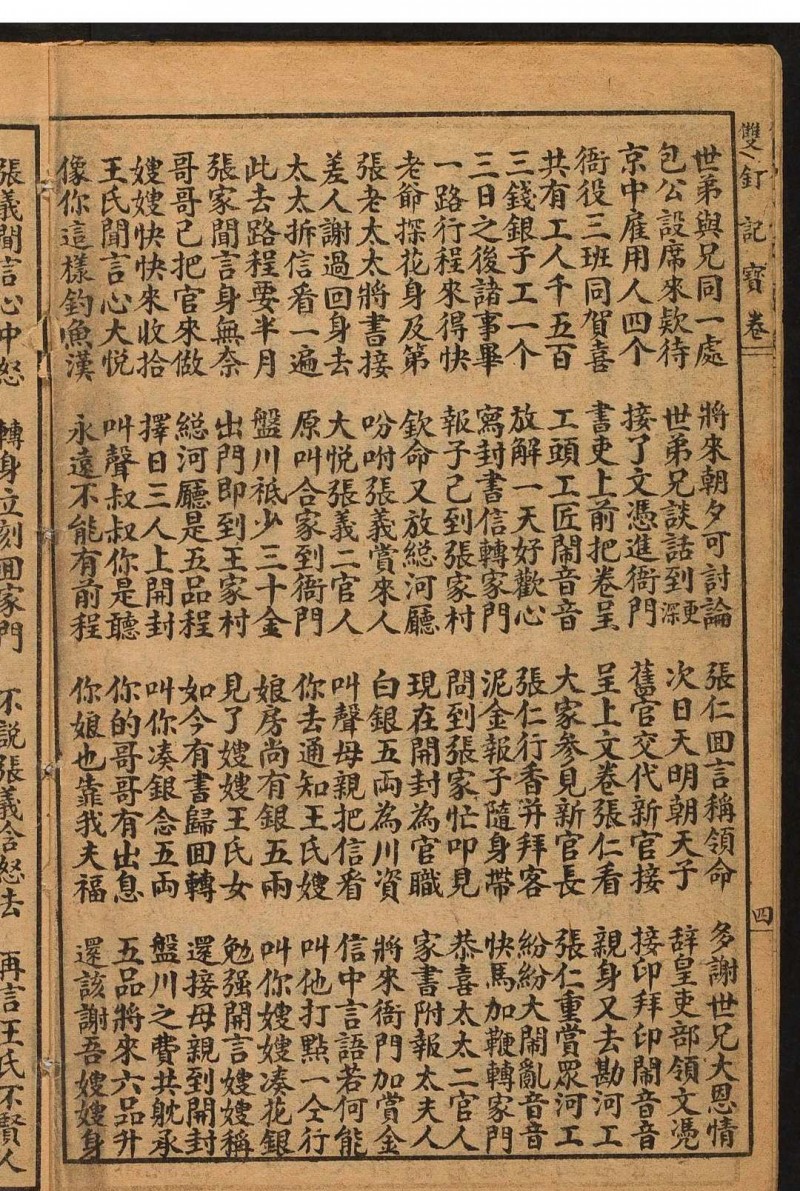 雙釘記寶卷 四
世弟與兄同一處 將來朝夕可討論 張仁囬言稱領命 多謝世兄大恩情
包公設席來欵待 世弟兄談話到深更 次日天明朝天子 辭皇吏部領文憑
京中雇用人四个 接了文憑進衙門 舊官交代新官接 接印拜印鬧音音
衙役三班同賀喜 書吏上前把卷呈 呈上文卷張仁看 親身又去勘河工
共有工人千五百 工頭工匠鬧音音 大家參見新官長 張仁重賞眾河工
三錢銀子工一个 放解一天好歡心 張仁行香并拜客 紛紛大鬧亂音音
三日之後諸事畢 寫封書信轉家門 泥金報子隨身帶 快馬加鞭轉家門
一路行程來得快 報子已到張家村 問到張家忙叩見 恭喜太太二官人
老爺探花身及第 欽命又放総河廳 現在開封為官職 家書附報太夫人
張老太太將書接 吩咐張義賞來人 白銀五両為川資 將來衙門加賞金
差人謝過回身去 大悦張義二官人 叫聲母親把信看 信中言語若何能
太太拆信看一遍 原叫合家到衙門 你去通知王氏嫂 叫他打點一仝行
此去路程要半月 盤川祗少三十金 娘房尚有銀五兩 叫你嫂嫂凑花銀
張家聞言身無奈 出門即到王家村 見了嫂嫂王氏女 勉强開言嫂嫂稱
哥哥已把官來做 総河廳是五品程 如今有書歸囬轉 還接母親到開封
嫂嫂快快來收拾 擇日三人上開封 叫你凑銀念五両 盤川之費共躭承
王氏聞言心大悦 叫聲叔叔你是聽 你的哥哥有出息 五品將來六品升
像你這樣釣魚漢 永遠不能有前程 你娘也靠我夫福 還該謝吾嫂嫂身
張義聞言心中怒 轉身立刻囬家門 不說張義含怒去 再言王氏不賢人